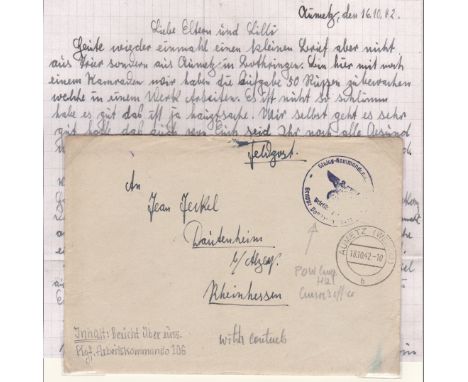 Aumetz, den 16.10.42.
Liebe Eltern und Lilli
Heute wieder einmahl einen kleinen Brief aber nicht
aus Trier sondern aus Aumetz in Lothringen. Bin hier mit noch
einem Kameraden wir haben die Aufgabe 50 Russen zu bewachen
welche in einem Werk Arbeiten. Es ist nicht so schlimm
habe es gut das ist ja hauptsache. Mir selbst geht es sehr
gut hoffe das auch von Euch seid Ihr noch alle Gesund
Feldpost.
An
Jean Jeckel
Dautenheim
b/Alzey
Rheinhessen
Stalag-Kommandantur
AUMETZ (WESTM)
18.10.42.-10
b
POW Camp
Inhalt: Bericht über russ.
Kgf. Arbeitskommando 106
with contents